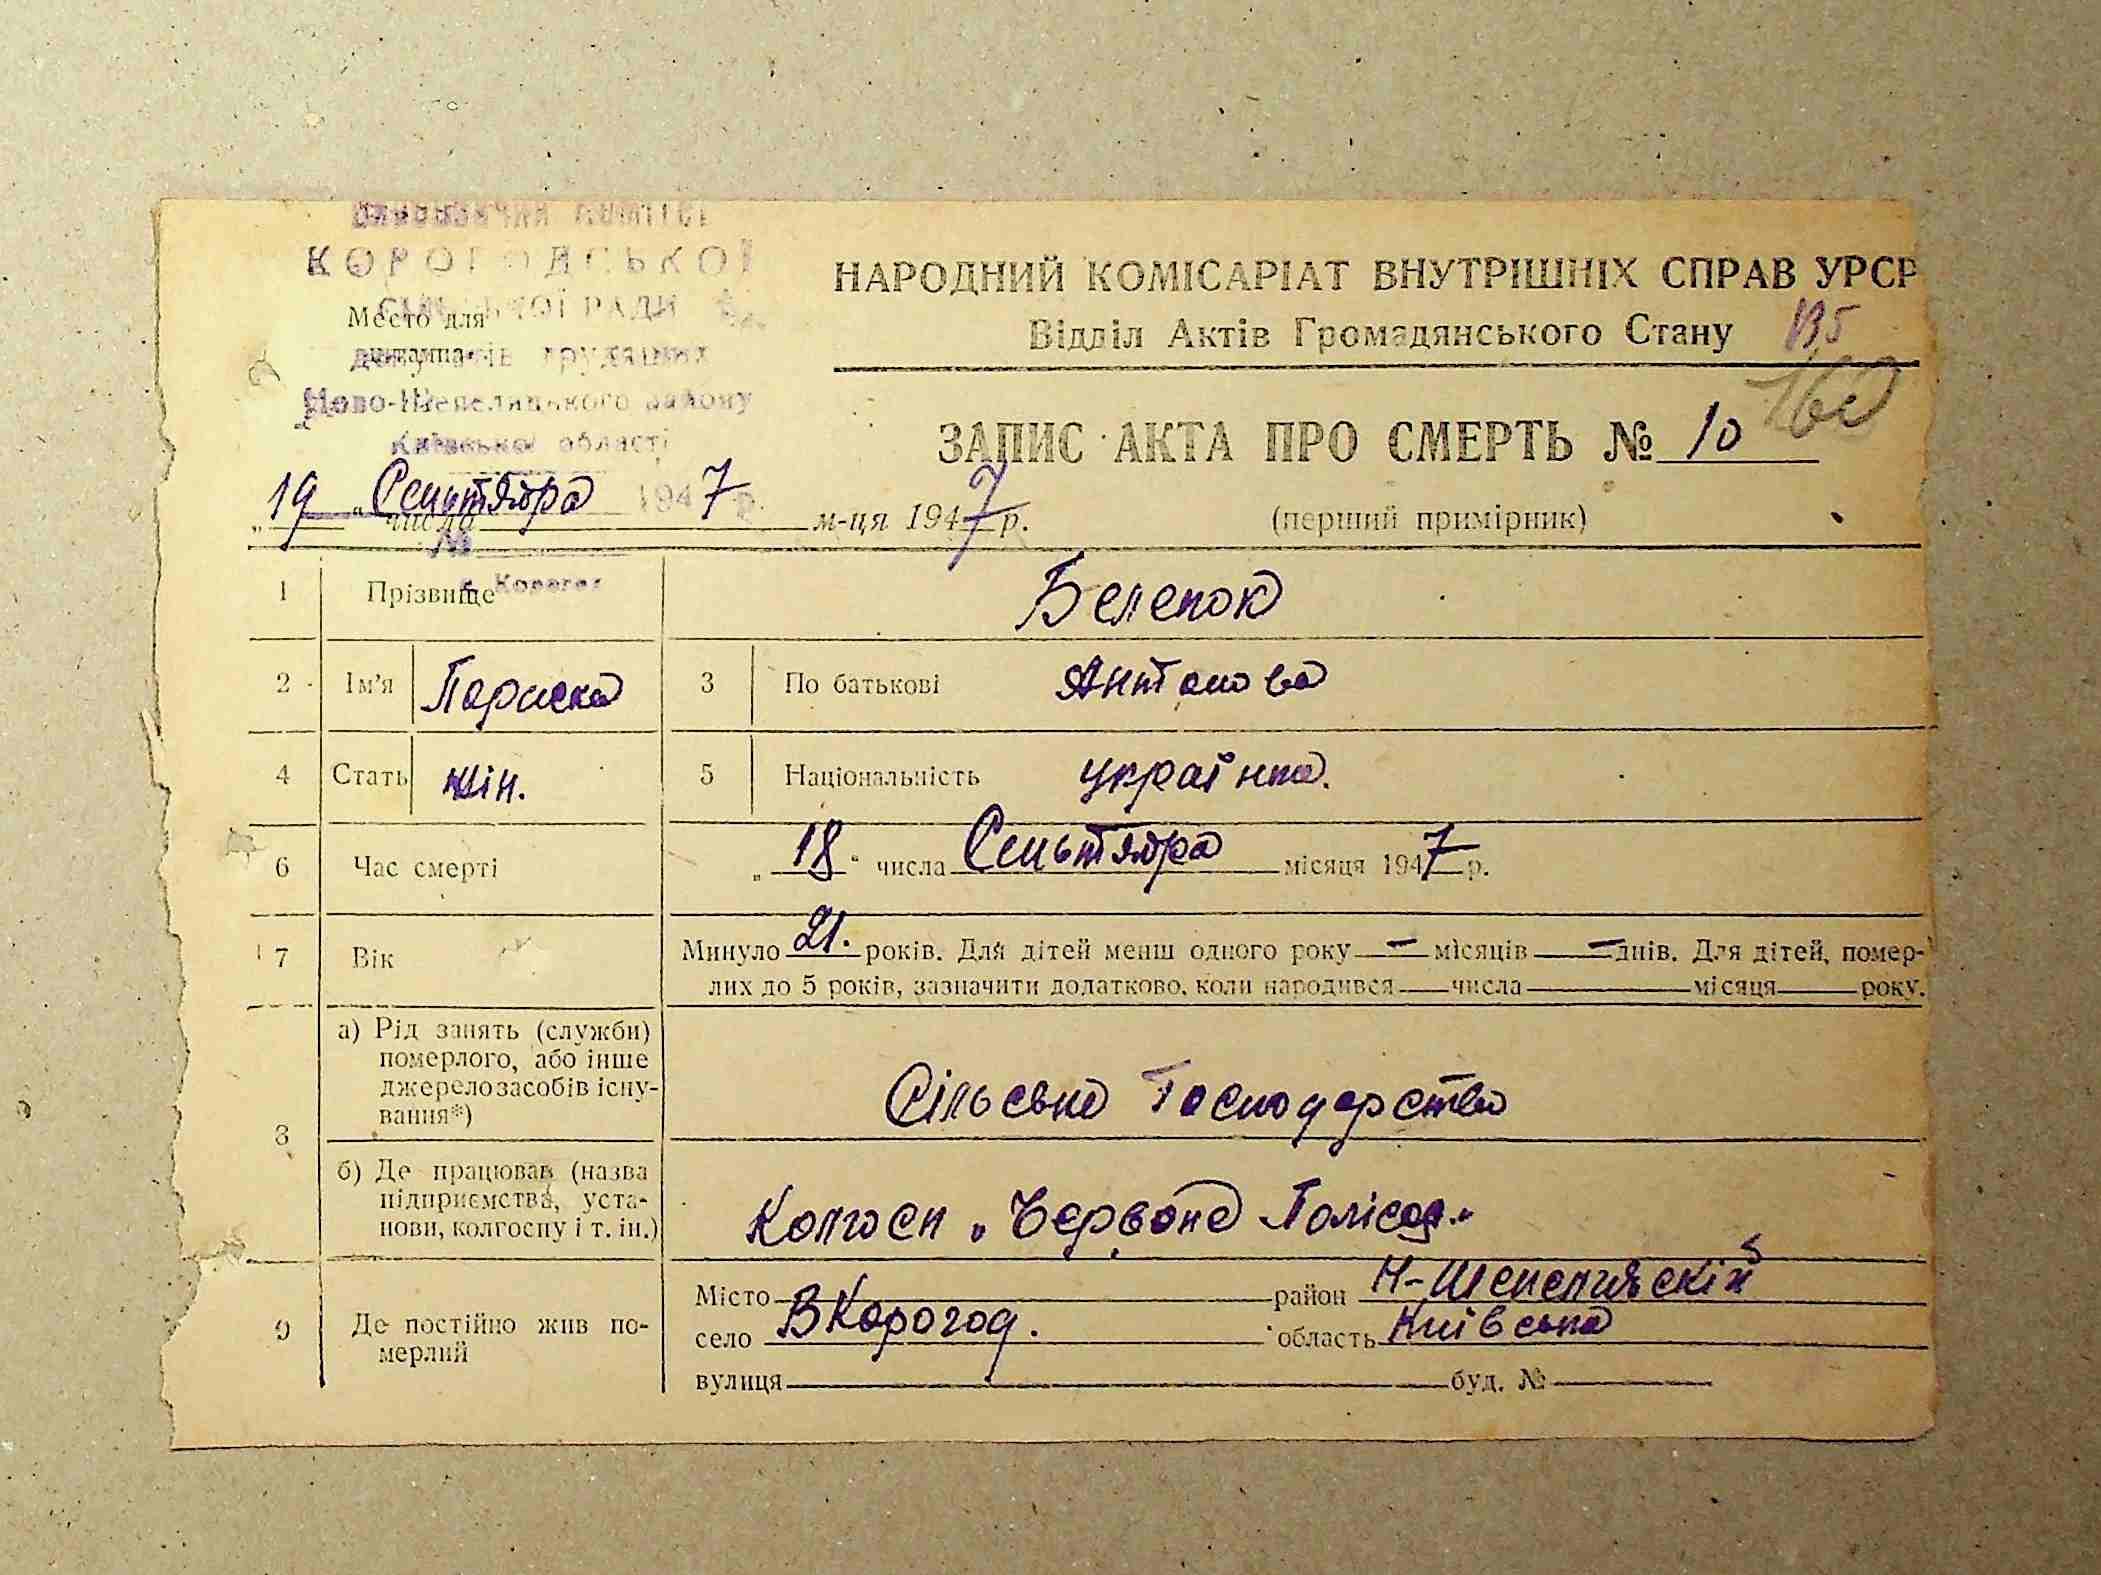 виконавчий комітет
КОРОГОДСЬКОЇ
СІЛЬСЬКОЇ РАДИ
Место для
штампа
депутатів трудящих
Ново-Шепелицького району
Київської області
НАРОДНИЙ КОМІСАРІАТ ВНУТРІШНІХ СПРАВ УРСР
Відділ Актів Громадянського Стану
160
ЗАПИС АКТА ПРО СМЕРТЬ № 10
„19“ числа Сеньтября 1947 р. м-ця 1947 р.
(перший примірник)
№
с. Корогод
1 Прізвище Белепок
2 Ім'я Параска 3 По батькові Антонова
4 Стать жін. 5 Національність українка.
6 Час смерті „18“ числа Сеньтября місяця 1947 р.
7 Вік Минуло 21. років. Для дітей менш одного року — місяців — днів. Для дітей, помер-
лих до 5 років, зазначити додатково, коли народився числа місяця року.
8 а) Рід занять (служби)
померлого, або інше
джерело засобів існу-
вання*)
Сільське Господарство
б) Де працював (назва
підприємства, уста-
нови, колгоспу і т. ін.)
Колгосп „Червоне Полісся"
9 Де постійно жив по-
мерлий
Місто район Н-Шепелицьскій
село В Корогод. область Київська
вулиця буд. №